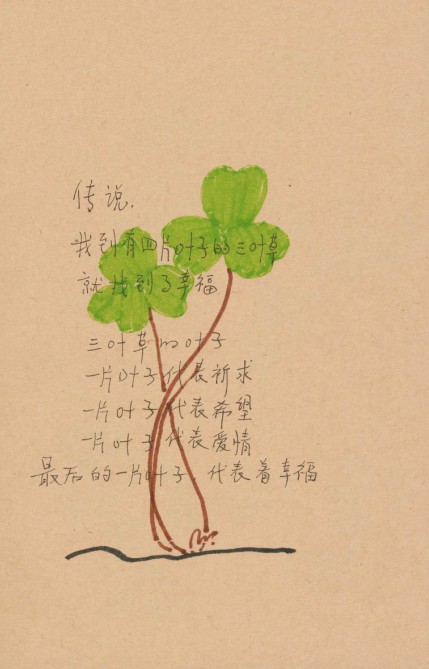 传说.
找到有四片叶子的三叶草
就找到了幸福
三叶草的叶子
一片叶子代表祈求
一片叶子代表希望
一片叶子代表爱情
最后的一片叶子.代表着幸福